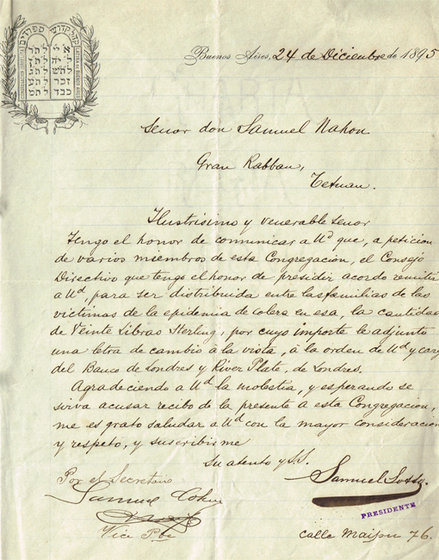 Buenos Aires, 24 de Diciembre de 1895
Señor don Samuel Nahon
Gran Rabban,
Tetuan.
Ilustrisimo y venerable Señor
Tengo el honor de comunicar a Ud que, a peticion
de varios miembros de esta Congregación, el Consejo
Directivo que tengo el honor de presidir acordo remitir
a Ud, para ser distribuida entre las familias de las
victimas de la epidemia de colera en esa, la cantidad
de Veinte Libras Sterling; por cuyo importe le adjunto
una letra de cambio á la vista, á la orden de Ud y cargo
del Banco de Londres y River Plate, de Londres.
Agradeciendo a Ud la molestia, y esperando se
sirva acusar recibo de la presente a esta Congregacion,
me es grato saludar a Ud con la mayor consideracion
y respeto, y suscribirme
Su atento y S.S.
Por el Secretario
Samuel
Samuel
PRESIDENTE
Vice Pte
calle Maipu 76.